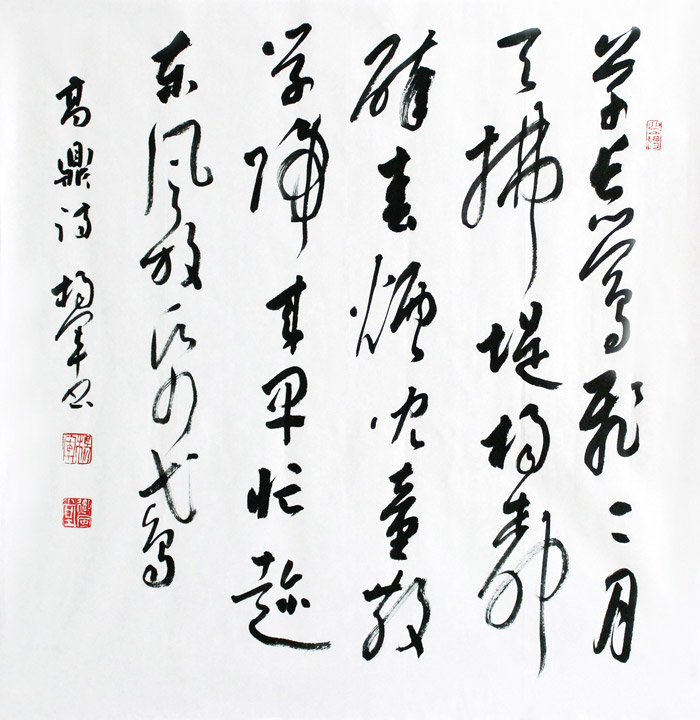 草长莺飞二月
天拂堤杨柳
醉春煙儿童散
学归来早忙趁
东风放纸鸢
高鼎诗 杨军书